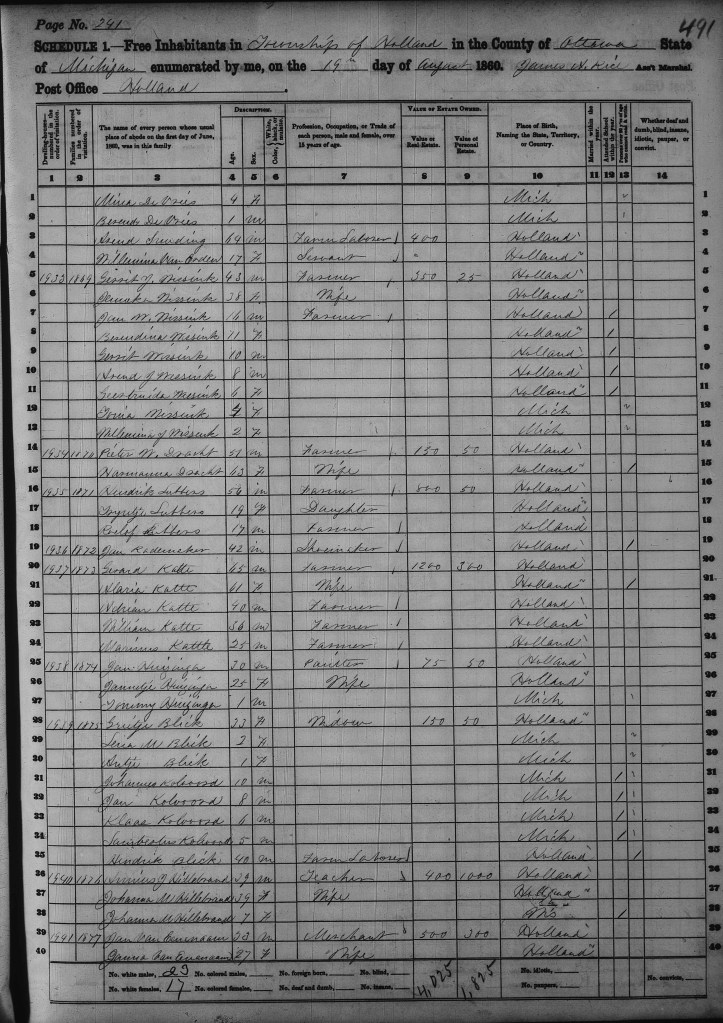 Page No. 241
491
SCHEDULE 1.—Free Inhabitants in Township of Holland in the County of Ottawa State
of Michigan enumerated by me, on the 19th day of August 1860. Ass't Marshal.
Post Office Holland.
DESCRIPTION. VALUE OF ESTATE OWNED.
Dwelling-houses numbered in the order of visitation. Families numbered in the order of visitation. The name of every person whose usual place of abode on the first day of June, 1860, was in this family Age. Sex. Color, White, black, or mulatto. Profession, Occupation, or Trade of each person, male and female, over 15 years of age. Value of Real Estate. Value of Personal Estate. Place of Birth, Naming the State, Territory, or Country. Married within the year. Attended School within the year. Whether deaf and dumb, blind, insane, idiotic, pauper, or convict.
1 2 3 4 5 6 7 8 9 10 11 12 13 14
1 Mina De Vries 4 F Mich
2 Berend De Vries 1 m Mich
3 Arend 64 m Farm Laborer 400 Holland
4 Willemina Van 17 F Servant " Holland
5 1933 1869 Gerrit J Wissink 43 m Farmer 350 25 Holland
6 Wissink 38 F Wife Holland
7 Jan W. Wissink 16 m Farmer Holland
8 Berendina Wissink 11 F Holland 1
9 Gerrit Wissink 10 m Holland 1
10 Arend J Wissink 8 m Holland 1
11 Wissink 6 F Holland 1
12 Wissink 4 F Mich
13 Willemina J Wissink 2 F Mich
14 1934 1870 Pieter W. Dracht 51 m Farmer 150 50 Holland
15 Harmanna Dracht 63 F Wife Holland 1
16 1935 1871 Hendrik Lubbers 56 m Farmer 800 50 Holland
17 Lubbers 19 F Daughter Holland
18 Roelof Lubbers 17 m Farmer Holland
19 1936 1872 Jan Rademaker 42 m Shoemaker Holland 1
20 1937 1873 Gerard Katte 65 m Farmer 1200 300 Holland
21 Maria Katte 61 F Wife Holland 1
22 Adrian Katte 40 m Farmer Holland
23 William Katte 36 m Farmer Holland
24 Marinus Katte 25 m Farmer Holland
25 1938 1874 Jan Huizinga 30 m Painter 75 50 Holland
26 Jannetje Huizinga 25 F Wife Holland
27 Tommy Huizinga 1 m Mich
28 1939 1875 Blick 33 F Widow 150 50 Holland
29 M Blick 3 F Mich
30 Antje Blick 1 F Mich
31 Johannes Kolvoord 10 m Mich 1
32 Jan Kolvoord 8 m Mich 1
33 Klaas Kolvoord 6 m Mich 1
34 Kolvoord 5 m Mich 1
35 Hendrik Blick 40 m Farm Laborer Holland 1
36 1940 1876 J Hillebrand 39 m Teacher 400 1000 Holland
37 Johanna M Hillebrand 39 F Wife Holland
38 Johanna M Hillebrand 7 F 1
39 1941 1877 Jan Van 33 m Merchant 500 300 Holland
40 Van 27 F Wife Holland
No. white males, 23 No. colored males, No. foreign born, No. blind, 4,025 1,825 No. idiotic, No. convicts,
No. white females, 17 No. colored females, No. deaf and dumb, No. insane, No. paupers,